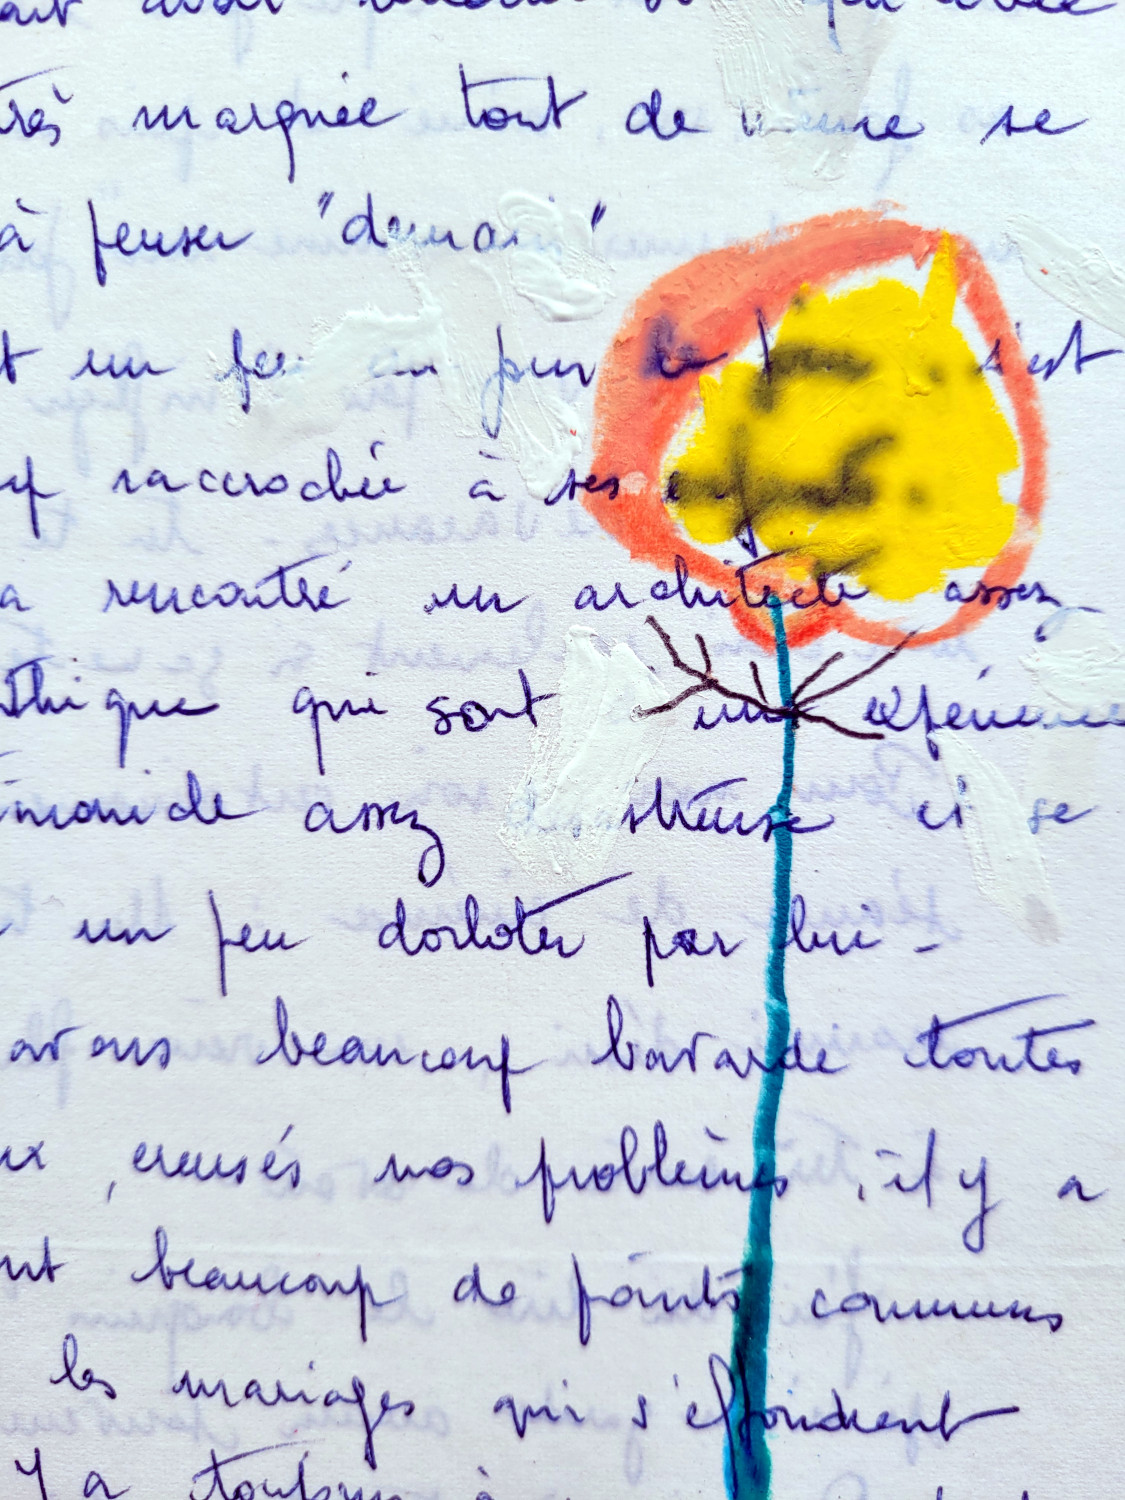 très marquée tout de même se
à penser "demain"
t un peu au jour le jour. s'est
raccrochée à ses enfants.
a rencontré un architecte assez
thique qui sort un expérience
assez et se
un peu dorloter par lui -
avons beaucoup bavardé toutes
ux, creusés nos problèmes, il y a
nt beaucoup de points communs
les mariages qui s'effondrent
Y a toujours à